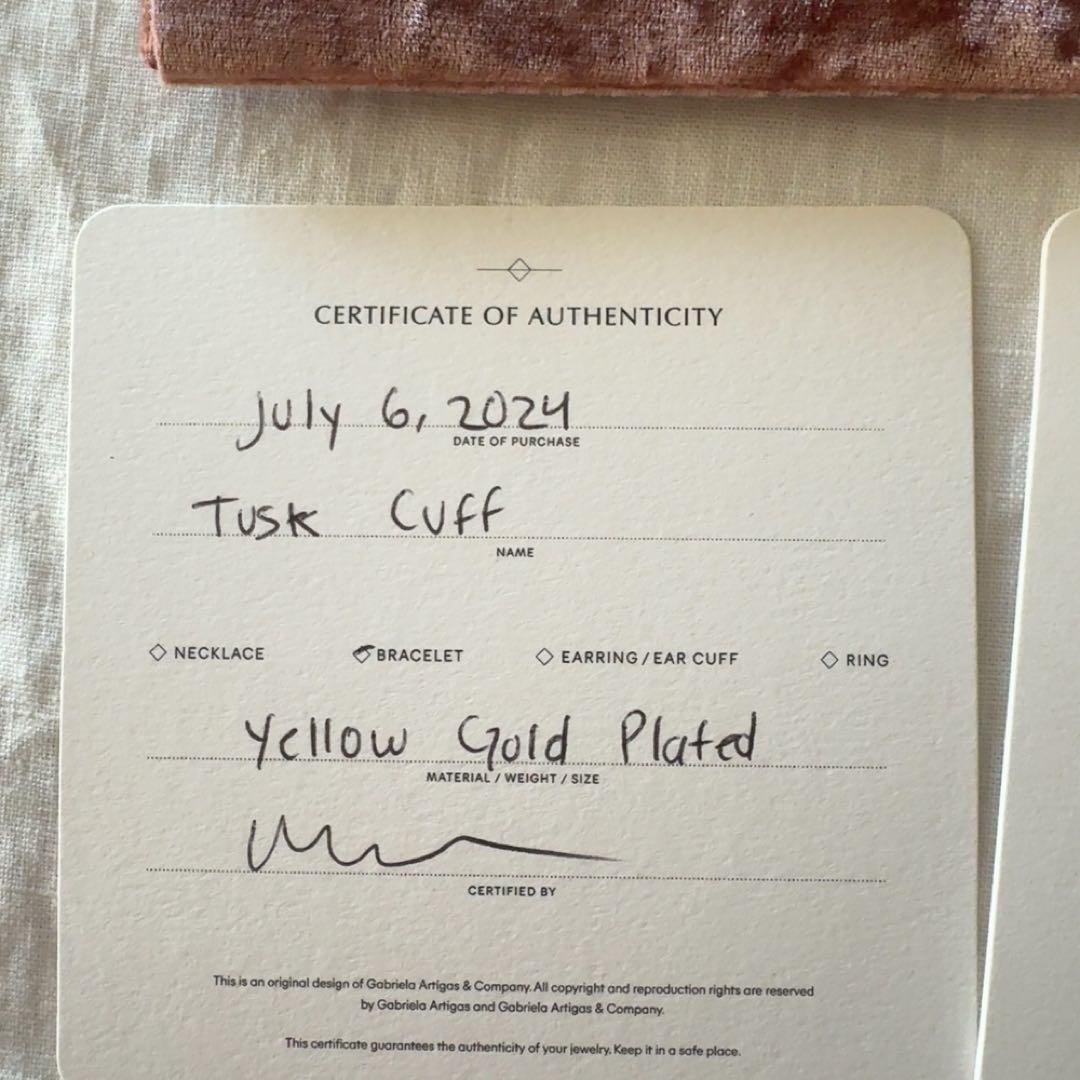 CERTIFICATE OF AUTHENTICITY
July 6, 2024
DATE OF PURCHASE
Tusk Cuff
NAME
NECKLACE BRACELET EARRING / EAR CUFF RING
Yellow Gold Plated
MATERIAL / WEIGHT / SIZE
CERTIFIED BY
This is an original design of Gabriela Artigas & Company. All copyright and reproduction rights are reserved
by Gabriela Artigas and Gabriela Artigas & Company.
This certificate guarantees the authenticity of your jewelry. Keep it in a safe place.